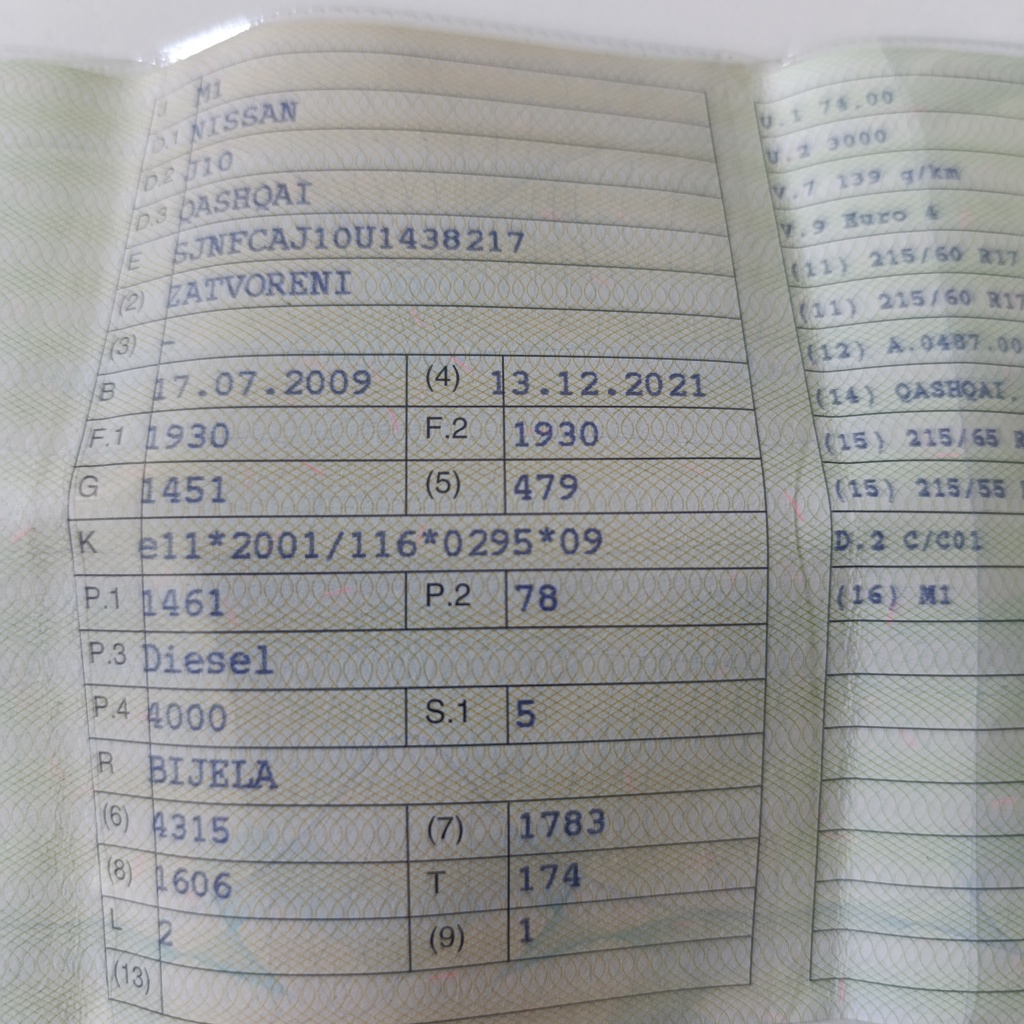 J M1
D.1 NISSAN
D.2 J10
D.3 QASHQAI
E SJNFCAJ10U1438217
(2) ZATVORENI
(3) -
B 17.07.2009 (4) 13.12.2021
F.1 1930 F.2 1930
G 1451 (5) 479
K e11*2001/116*0295*09
P.1 1461 P.2 78
P.3 Diesel
P.4 4000 S.1 5
R BIJELA
(6) 4315 (7) 1783
(8) 1606 T 174
L 2 (9) 1
(13)
U.1 74.00
U.2 3000
V.7 139 g/km
V.9 Euro 4
(11) 215/60 R17
(11) 215/60 R17
(12) A.0487.00
(14) QASHQAI,
(15) 215/65 R
(15) 215/55
D.2 C/C01
(16) M1